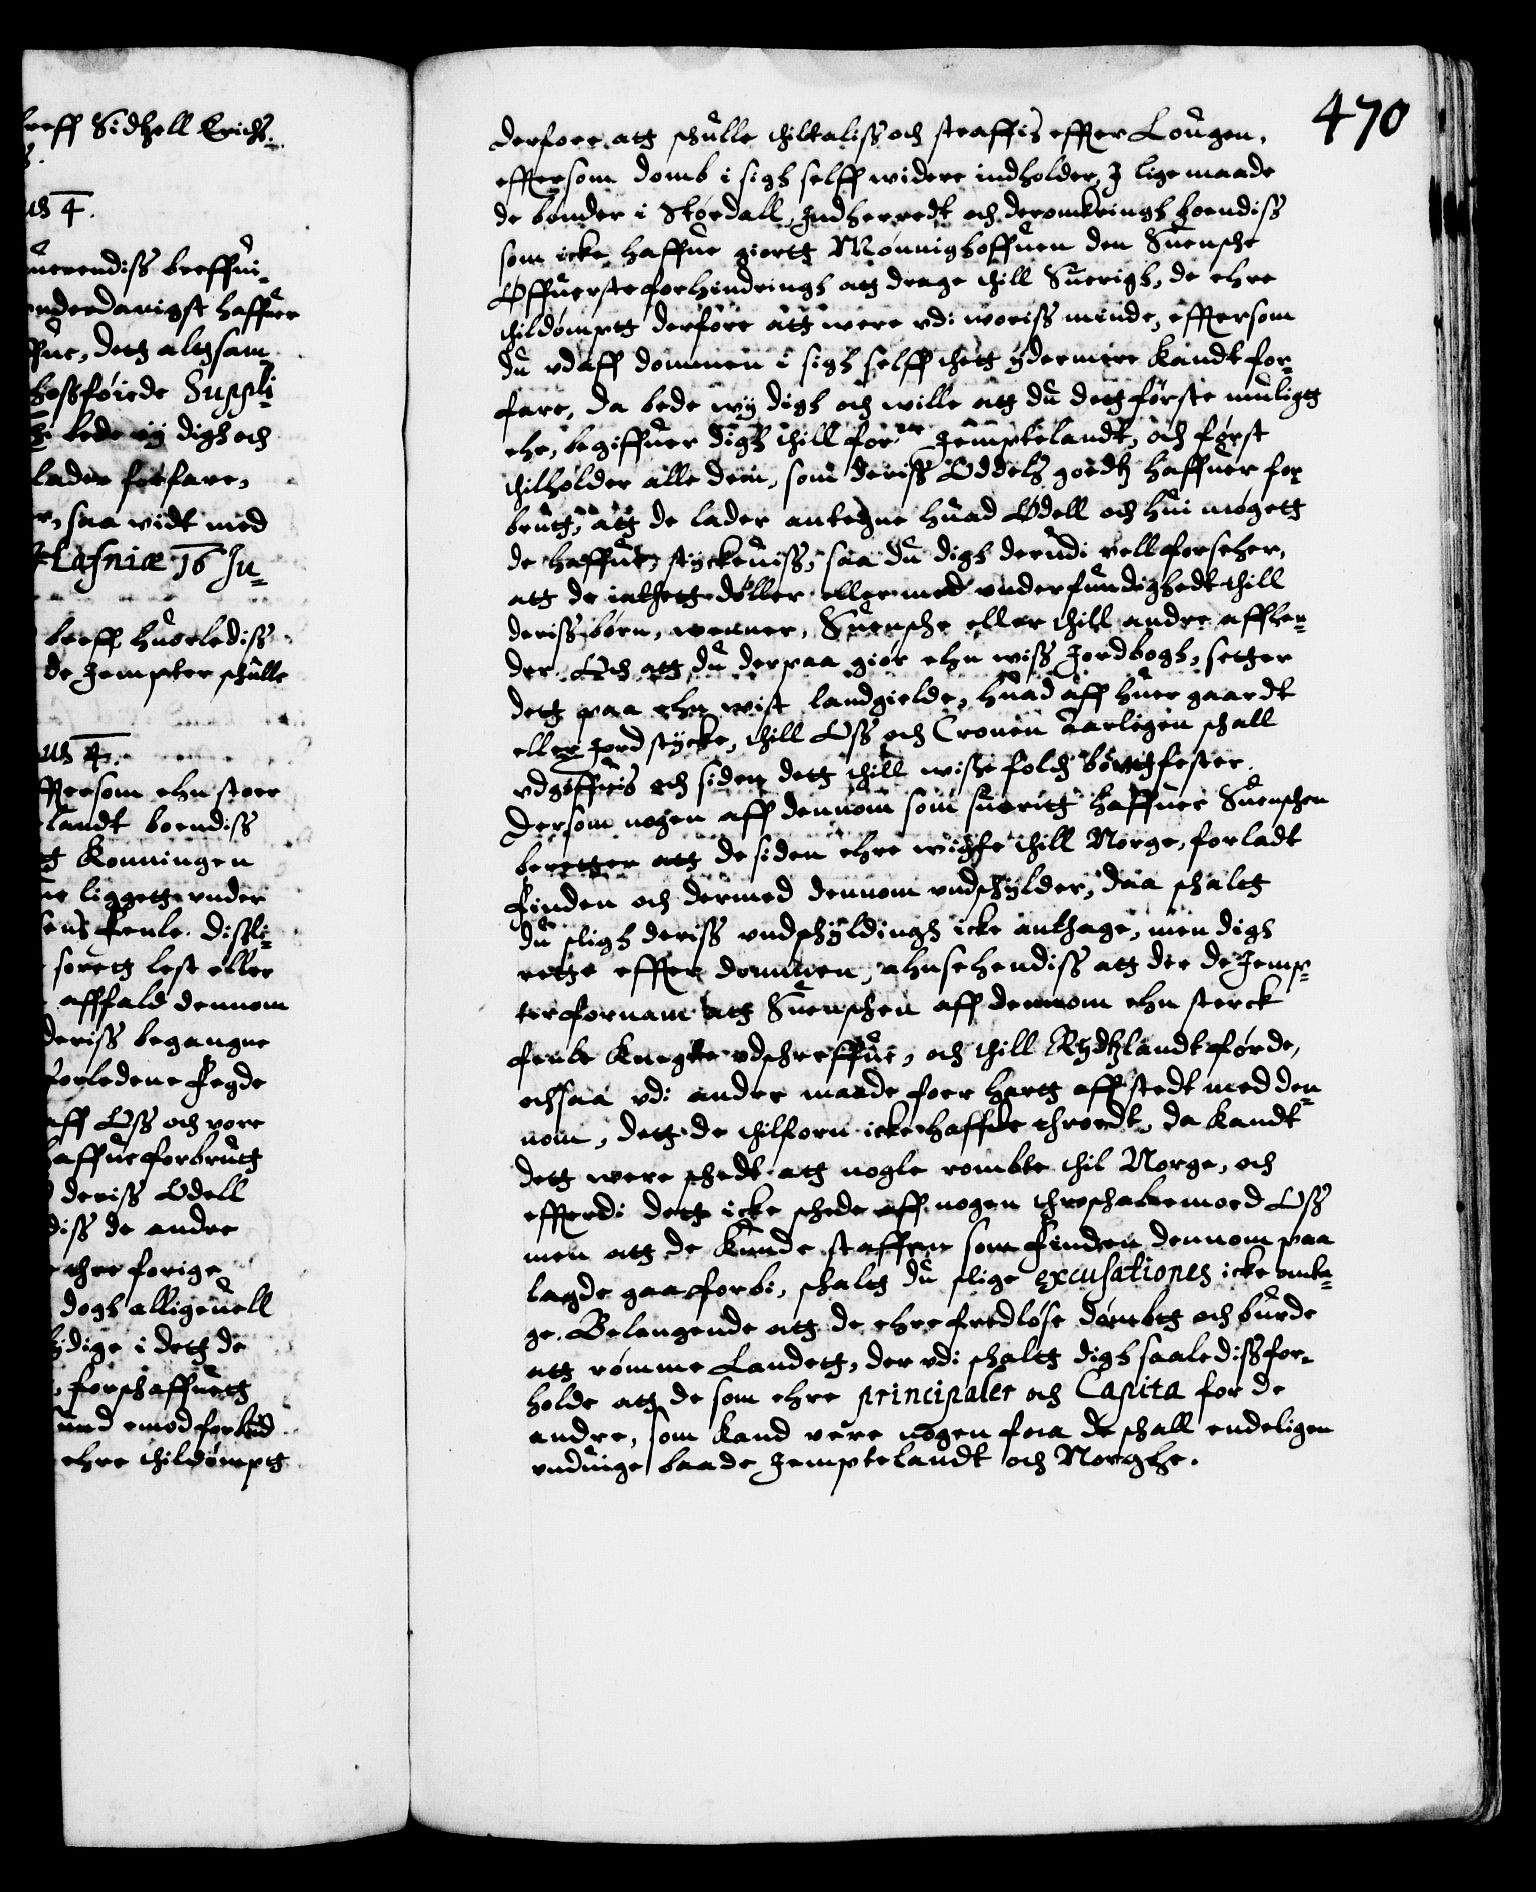 breff Sidzell Erichs.
us 4.
nerendiss breffui-
underdanigst haffuer
ffue, dett altsam
hossføiede Suppli-
bede wij digh och
lader forfare,
r, saa vidt med
Haffniæ 16 Ju-
breff huorlediss
de Jempter schulle
us 4.
ffersom ehn stoer
landt boendiss
Konningen
ne liggett under
ens Fenle. Dissli-
sorett lest eller
affald dennom
deriss begangne
forledene Fegde
aff Oss och vore
haffue forbrutt
deriss Odell
diss de andre
ehre forige
dogh alligeuell
lydige i dett de
, forschaffuett
und emod forbud
ehre thildømptt
470
derfore att schulle thiltaliss och straffis effter Lougen,
effersom domb i sigh selff widere indholder, J lige maade
de bønder i Størdall, Indherredt och deromkringh boendiss
som icke haffue giortt Mønnighoffuen den Suensche
Øffuerste forhindringh att drage thill Suerigh, de ehre
thildømptt derfore att were udi woriss minde, effersom
du udaff dommen i sigh selff thett ydermere kandt for-
fare, da bede wij digh och wille att du dett første muligtt
ehr, begiffuer digh thill for.ne Jemptelandt, och først
thilholder alle dem, som deriss Oddels goedtz haffuer for
brutt, att de lader antegne huad Odell och hui mogett
de haffue stÿckeuiss, saa du digh derudi vell forseher,
att de inthett døller eller med underfundighedt thill
deriss børn, wenner, Suensche eller thill andre affhen-
der. Och att du derpaa giør ehn wiss Jordbogh, setter
dett paa ehn wist landgielde, huad aff huer gaardt
eller Jord stÿcke, thill Oss och Cronen aarligen schall
udgiffuis och siden dett thill wisse folch bortfester.
Dersom nogen aff dennom som suoritt haffuer Suenschen
beretter att de siden ehre wichte thill Norge, forladt
Finden och dermed dennom undschÿlder, daa schalt
du sligh deriss undschÿldingh icke anthage, men digh
rette effter dommen, ahnsehendiss att der de Jemp-
ter fornam att Suenschen aff dennom ehn sterck
fenle knegte udschreffue, och thill Rydtzlandt førde,
ochsaa udi andre maade foer hartt aff stedt med den
nom, dett de thilforn icke haffde throedt, da kandt
dett were schedt att nogle rømbte thil Norge, och
efferdi dett icke schede aff nogen throschab emod Oss
men att de kunde straffen som Finden dennom paa
lagde gaa forbi, schalt du slige excusationes icke anta-
ge. Belangende att de ehre fredløse dømbtt och burde
att rømme Landett, der udi schaltt digh saalediss for-
holde att de som ehre principaler och Capita for de
andre, som kand vere nogen faa de schall endeligen
undvige baade Jemptelandt och Norghe.